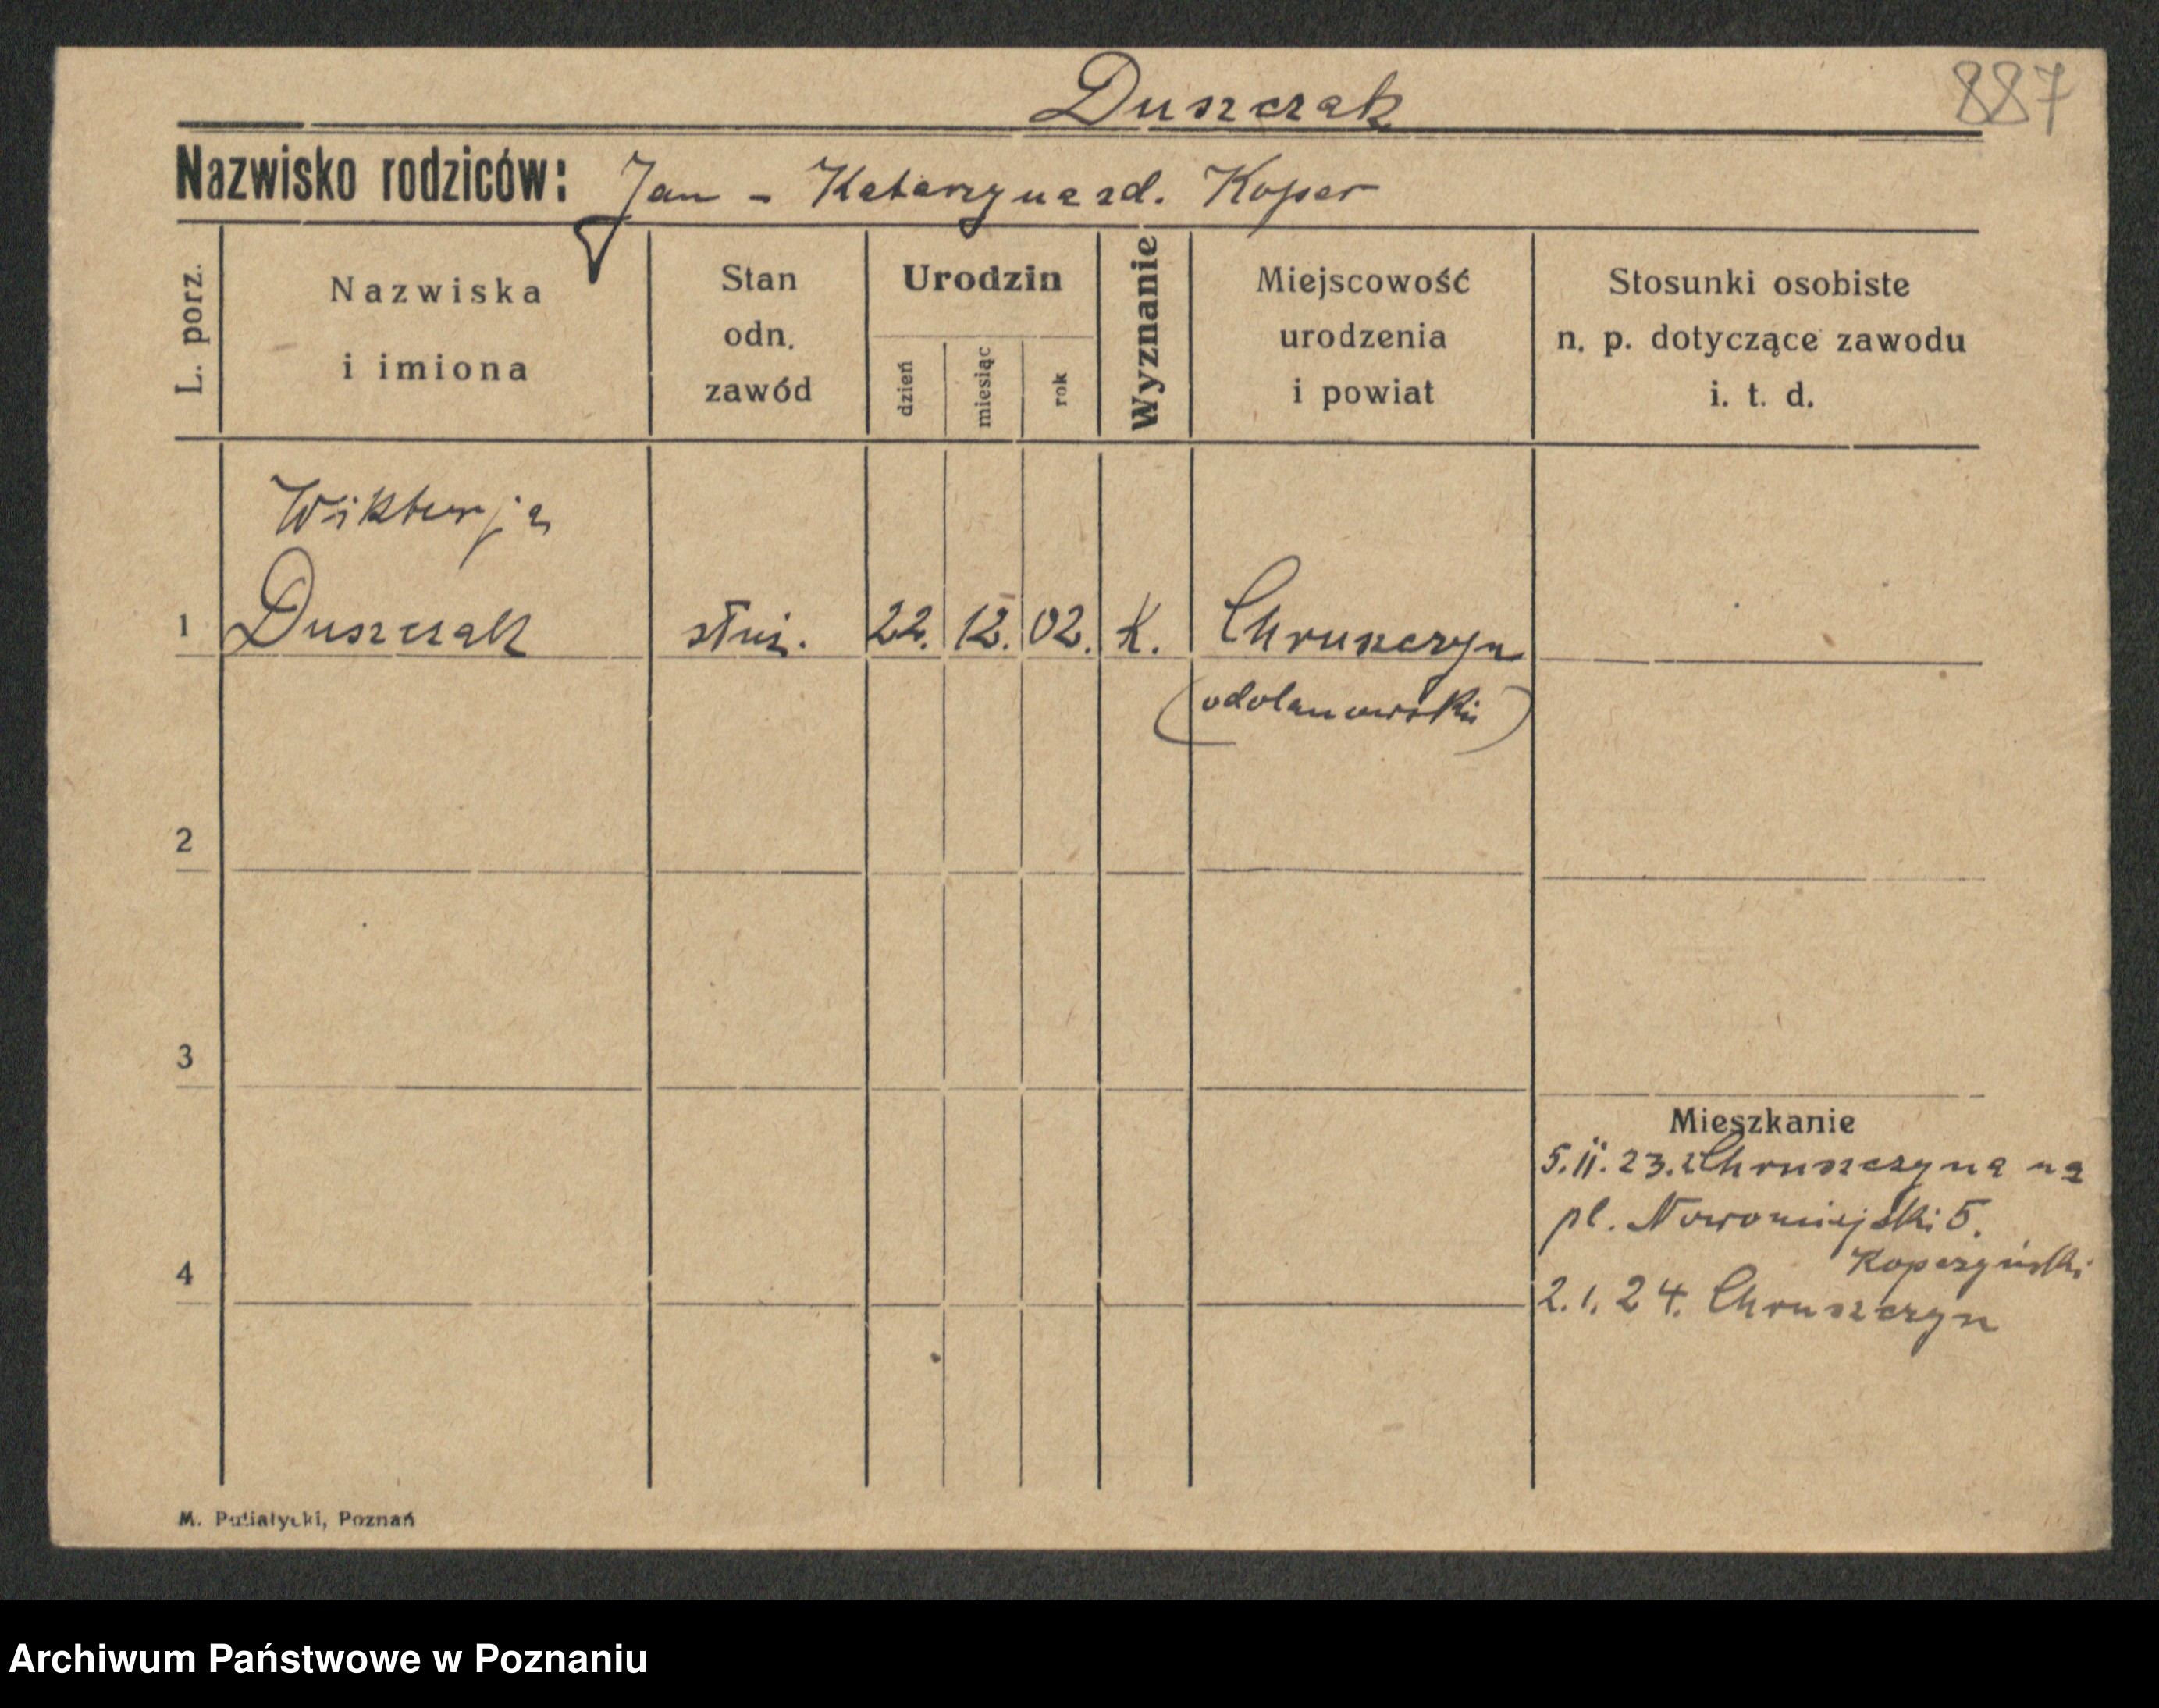 Duszczak
887
Nazwisko rodziców: Jan - Katarzyna zd. Koper
L. porz.
Nazwiska
i imiona
Stan
odn.
zawód
Urodzin
dzień
miesiąc
rok
Wyznanie
Miejscowość
urodzenia
i powiat
Stosunki osobiste
n. p. dotyczące zawodu
i. t. d.
Wiktorja
1 Duszczak służ. 22. 12. 02. K. Chruszczyn
(odolanowski)
2
3
Mieszkanie
5.II.23. z Chruszczyna na
pl. Nowomiejski 5.
Kopczyński
4
2.1.24. Chruszczyn
M. Putiatycki, Poznań
Archiwum Państwowe w Poznaniu